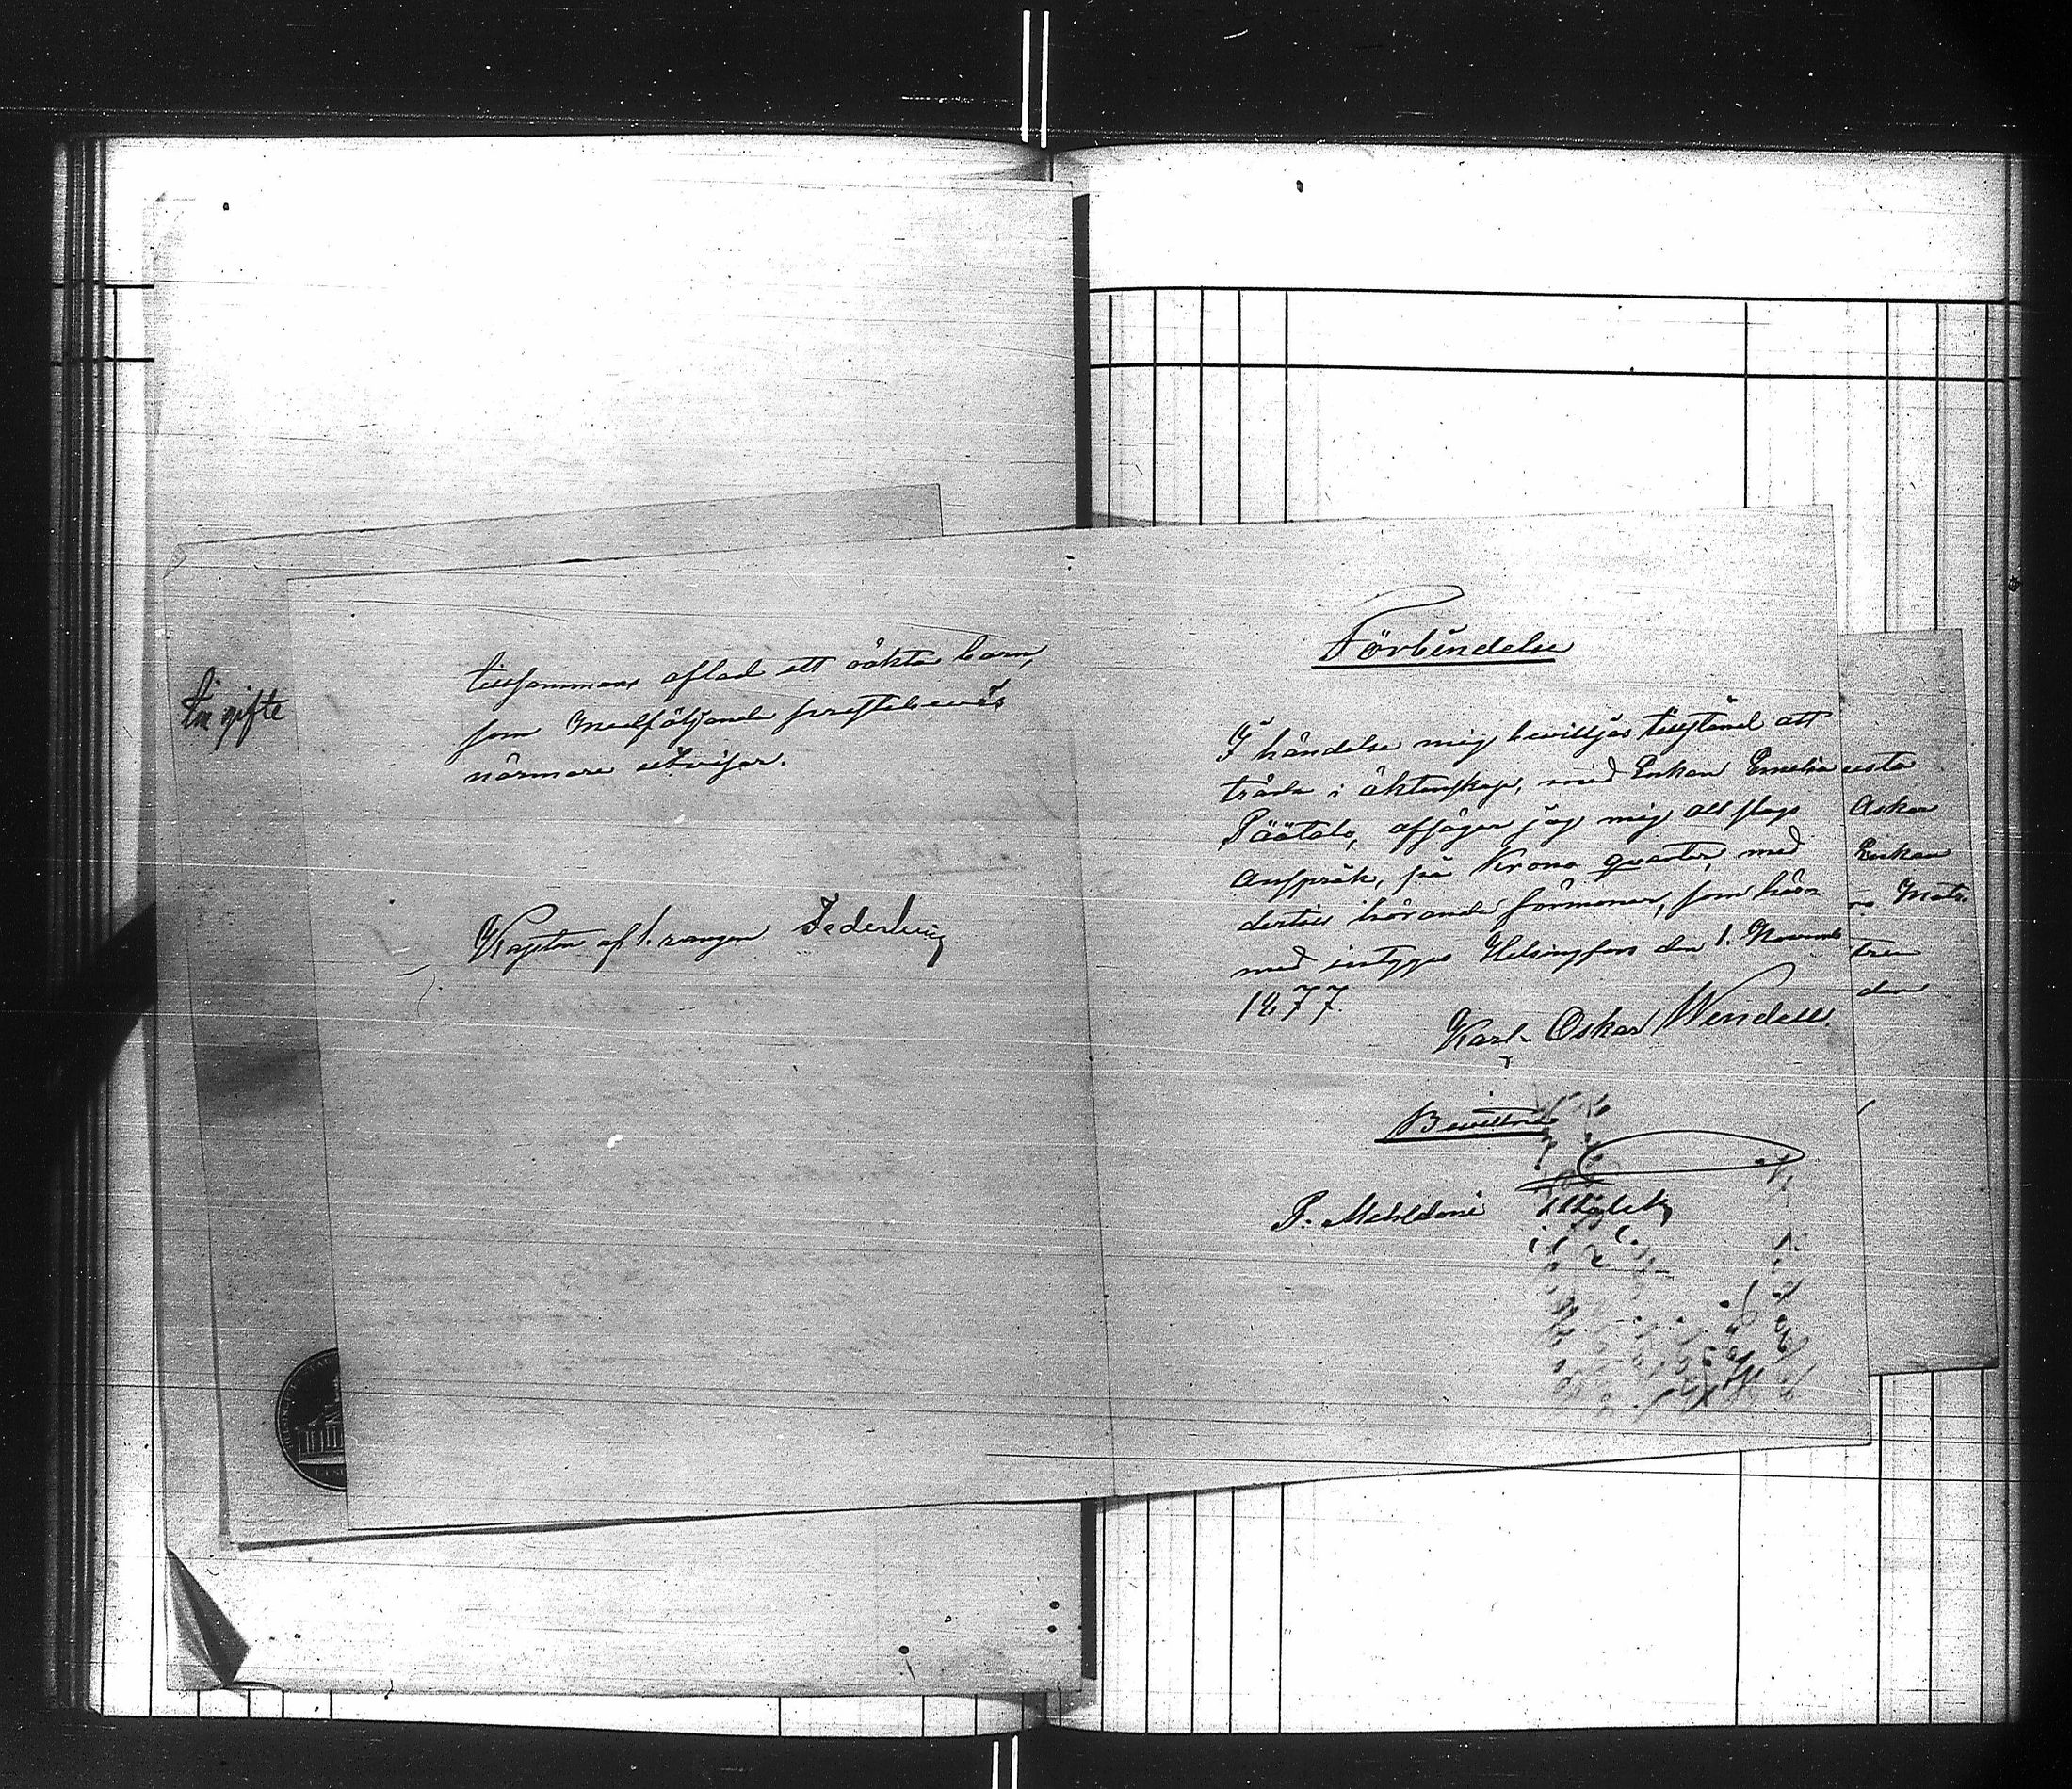 tillsammans aflad ett oäkta barn,
som medföljande prestebevis
närmare utvisar.
Kapten af 1. rangen Federley
gifte
Förbindelse
I händelse mig beviljas tillstånd att
träda i äktenskap, med Enkan Emelia
Päätalo, afsäger jag mig all slags
anspråk, på Krono quarter, med
dertill hörande förmoner, som här-
med intygas Helsingfors den 1. Novemb
1877.
Karl Oskar Wendell.
Bevittna
usta
Oskar
Enkan
den